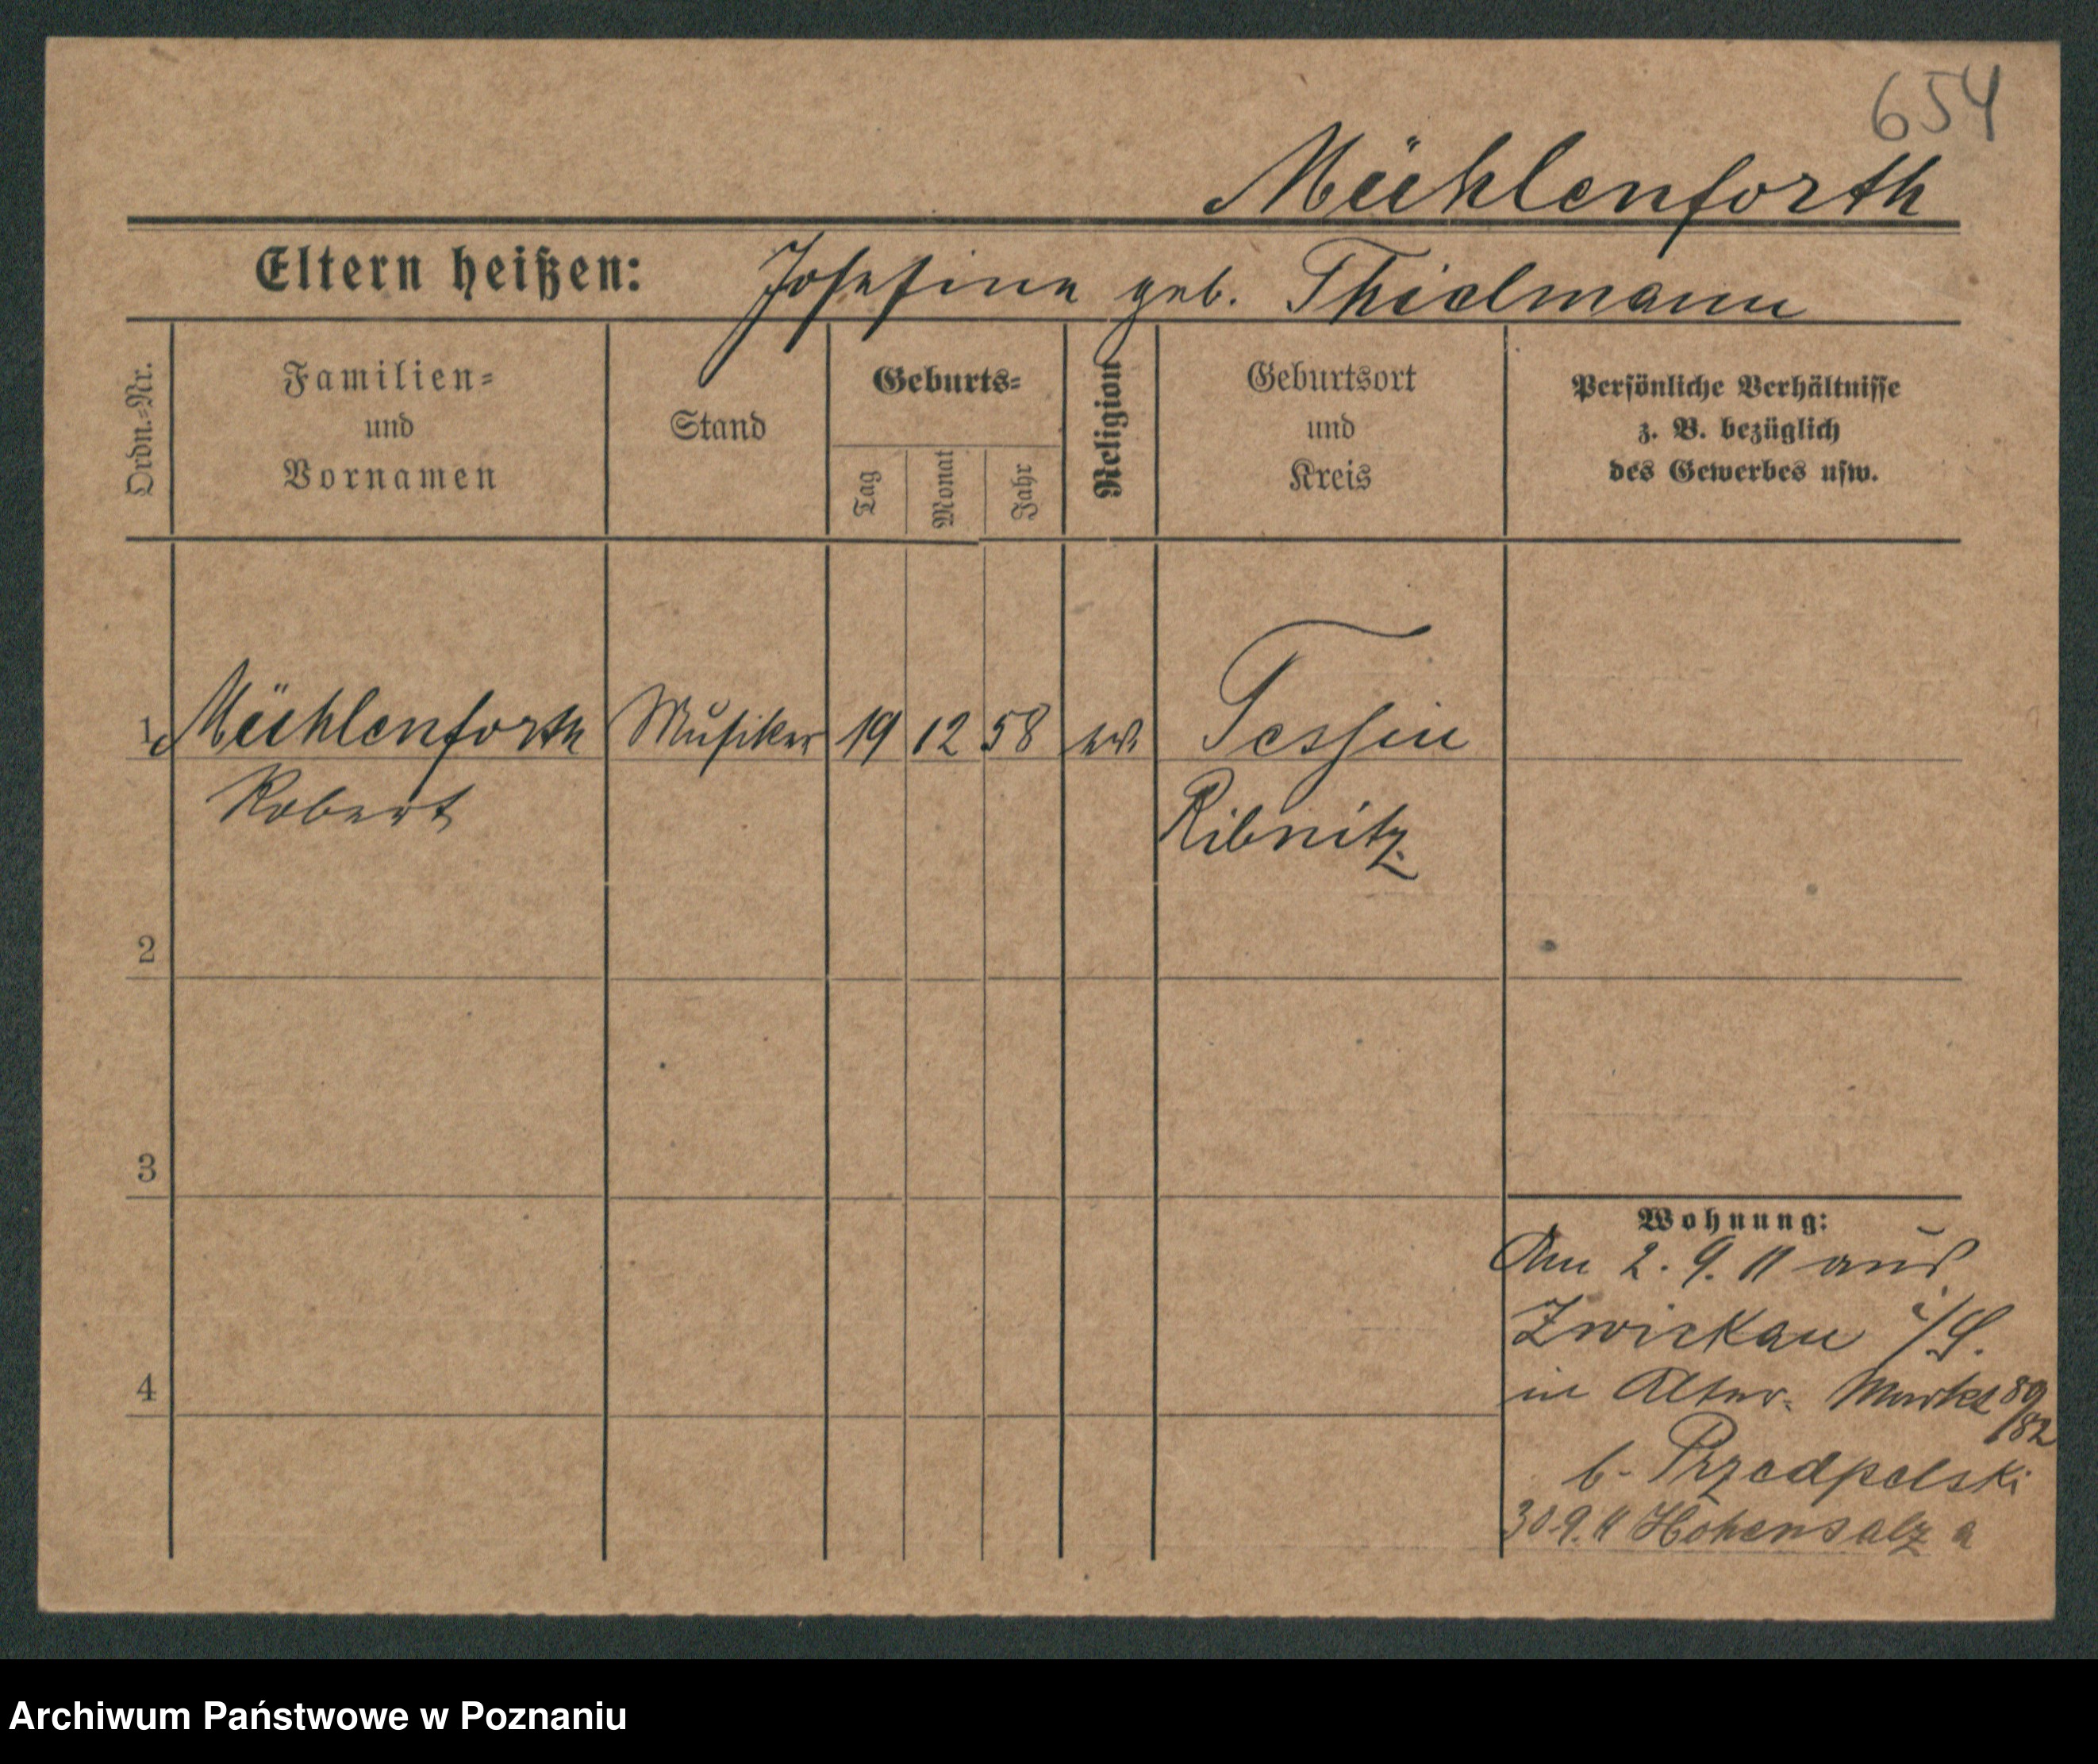 654
Mühlenforth
Eltern heißen: Josefine geb. Thielmann
Ordn.=Nr.
Familien=
und
Vornamen
Stand
Geburts=
Tag
Monat
Jahr
Religion
Geburtsort
und
Kreis
Persönliche Verhältnisse
z. B. bezüglich
des Gewerbes usw.
1 Mühlenforth Musiker 19 12 58 ev. Tessin
Robert Ribnitz
2
3
Wohnung:
Am 2. 9. 11 aus
Zwickau i/S.
4
in Alter. Markt 80
/82
b. Przedpelski
30.9.11 Hohensalza
Archiwum Państwowe w Poznaniu